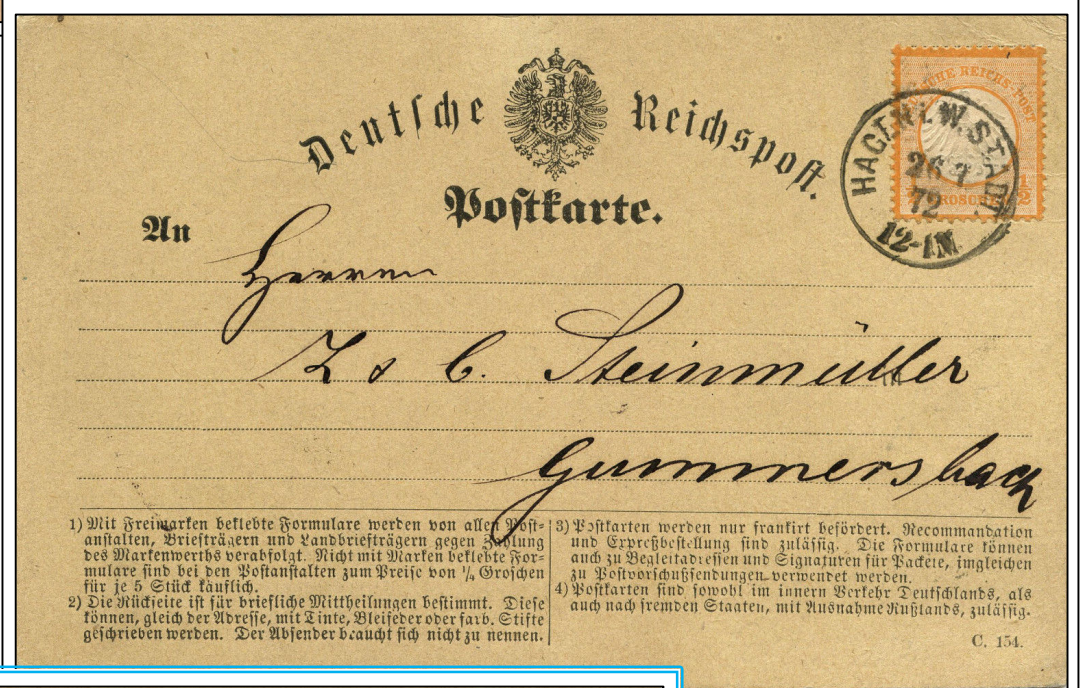 Deutsche Reichspost.
Postkarte.
DEUTSCHE REICHS-POST
½ GROSCHEN ½
HAGEN I.W. STADT
26 7
72
12-1N
An
Herren
L & C. Steinmüller
Gummersbach
1) Mit Freimarken beklebte Formulare werden von allen Post-
anstalten, Briefträgern und Landbriefträgern gegen Zahlung
des Markenwerths verabfolgt. Nicht mit Marken beklebte For-
mulare sind bei den Postanstalten zum Preise von ¼ Groschen
für je 5 Stück käuflich.
2) Die Rückseite ist für briefliche Mittheilungen bestimmt. Diese
können, gleich der Adresse, mit Tinte, Bleifeder oder farb. Stifte
geschrieben werden. Der Absender braucht sich nicht zu nennen.
3) Postkarten werden nur frankirt befördert. Recommandation
und Expreßbestellung sind zulässig. Die Formulare können
auch zu Begleitadressen und Signaturen für Packete, imgleichen
zu Postvorschußsendungen verwendet werden.
4) Postkarten sind sowohl im innern Verkehr Deutschlands, als
auch nach fremden Staaten, mit Ausnahme Rußlands, zulässig.
C. 154.